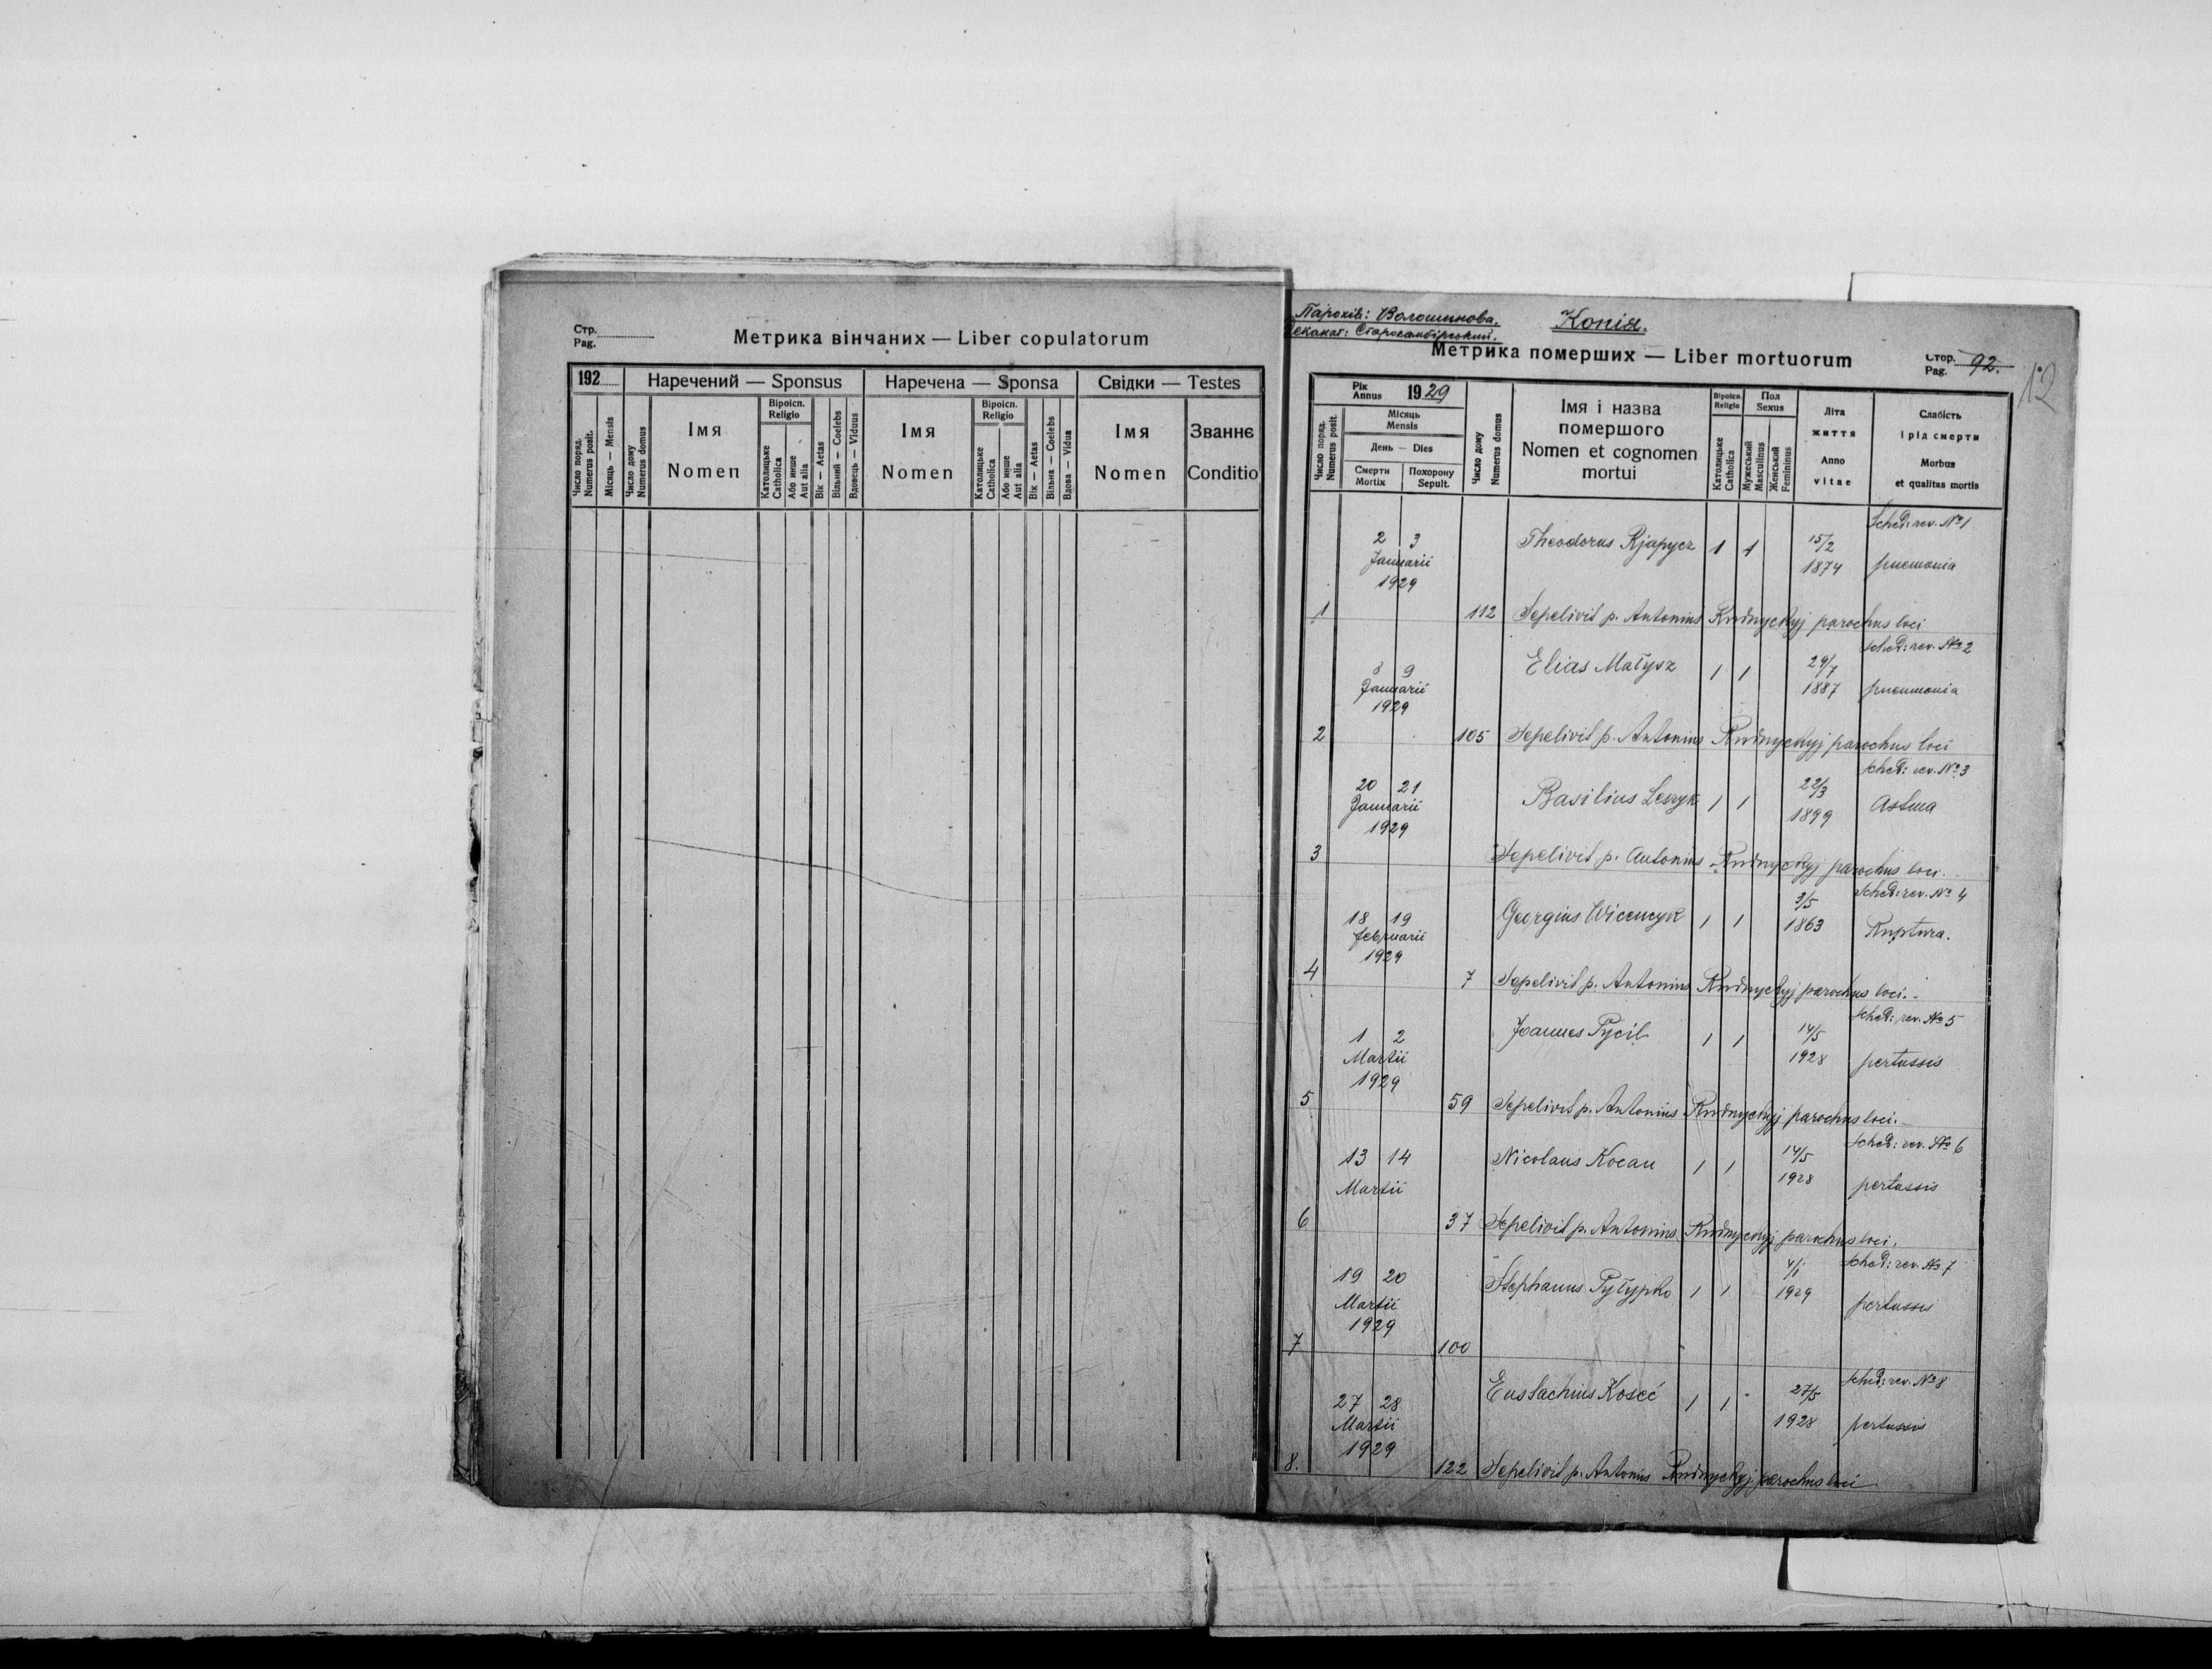 Стр.
Pag.
Метрика вінчаних — Liber copulatorum
192
Наречений — Sponsus
Наречена — Sponsa
Свідки — Testes
Число поряд.
Numerus posit.
Місяць — Mensis
Число дому
Numerus domus
Імя
Nomen
Віроісп.
Religio
Католицьке
Catholica
Або инше
Aut alia
Вік — Aetas
Вільний — Coelebs
Вдовець — Viduus
Імя
Nomen
Віроісп.
Religio
Католицьке
Catholica
Або инше
Aut alia
Вік — Aetas
Вільна — Coelebs
Вдова — Vidua
Імя
Nomen
Званнє
Conditio
Парохія: Волошинова.
Деканат: Старосамбірський.
Копія.
Метрика померших — Liber mortuorum
Стор.
Pag. 92.
12
Рік
Annus 1929
Число поряд.
Numerus posit.
Місяць
Mensis
День — Dies
Смерти
Mortix
Похорону
Sepult.
Число дому
Numerus domus
Імя і назва
помершого
Nomen et cognomen
mortui
Віроісп.
Religio
Католицьке
Catholica
Пол
Sexus
Мужеський
Masculinus
Женський
Femininus
Літа
життя
Anno
vitae
Слабість
і рід смерти
Morbus
et qualitas mortis
Sched: rev. № 1
2 3 Theodorus Rjapycz 1 1 15/2
Januarii 1874 pneumonia
1929
1 112 Sepelivit p. Antonius Rudnyckyj parochus loci
Sched: rev. № 2
8 9 Elias Małysz 1 1 29/7
Januarii 1887 pneumonia
1929
2 105 Sepelivit p. Antonius Rudnyckyj parochus loci
Sched: rev. № 3
20 21 Basilius Lesyk 1 1 22/3
Januarii 1899 Astma
1929
3 Sepelivit p. Antonius Rudnyckyj parochus loci.
Sched: rev. № 4
18 19 Georgius 1 1 3/5
Februarii 1863 Ruptura.
1929
4 7 Sepelivit p. Antonius Rudnyckyj parochus loci.-
Sched: rev. № 5
1 2 Joannes Pycil 1 1 14/5
Martii 1928 pertussis
1929
5 59 Sepelivit p. Antonius Rudnyckyj parochus loci.-
Sched: rev. № 6
13 14 Nicolaus Kocan 1 1 14/5
Martii 1928 pertussis
6 37 Sepelivit p. Antonius Rudnyckyj parochus loci.
Sched: rev. № 7
19 20 Stephanus Pyłypko 1 1 4/1
Martii 1929 pertussis
1929
7 100
Sched: rev. № 8
27 28 Eustachius Koseć 1 1 27/5
Martii 1928 pertussis
1929
8. 122 Sepelivit p. Antonius Rudnyckyj parochus loci